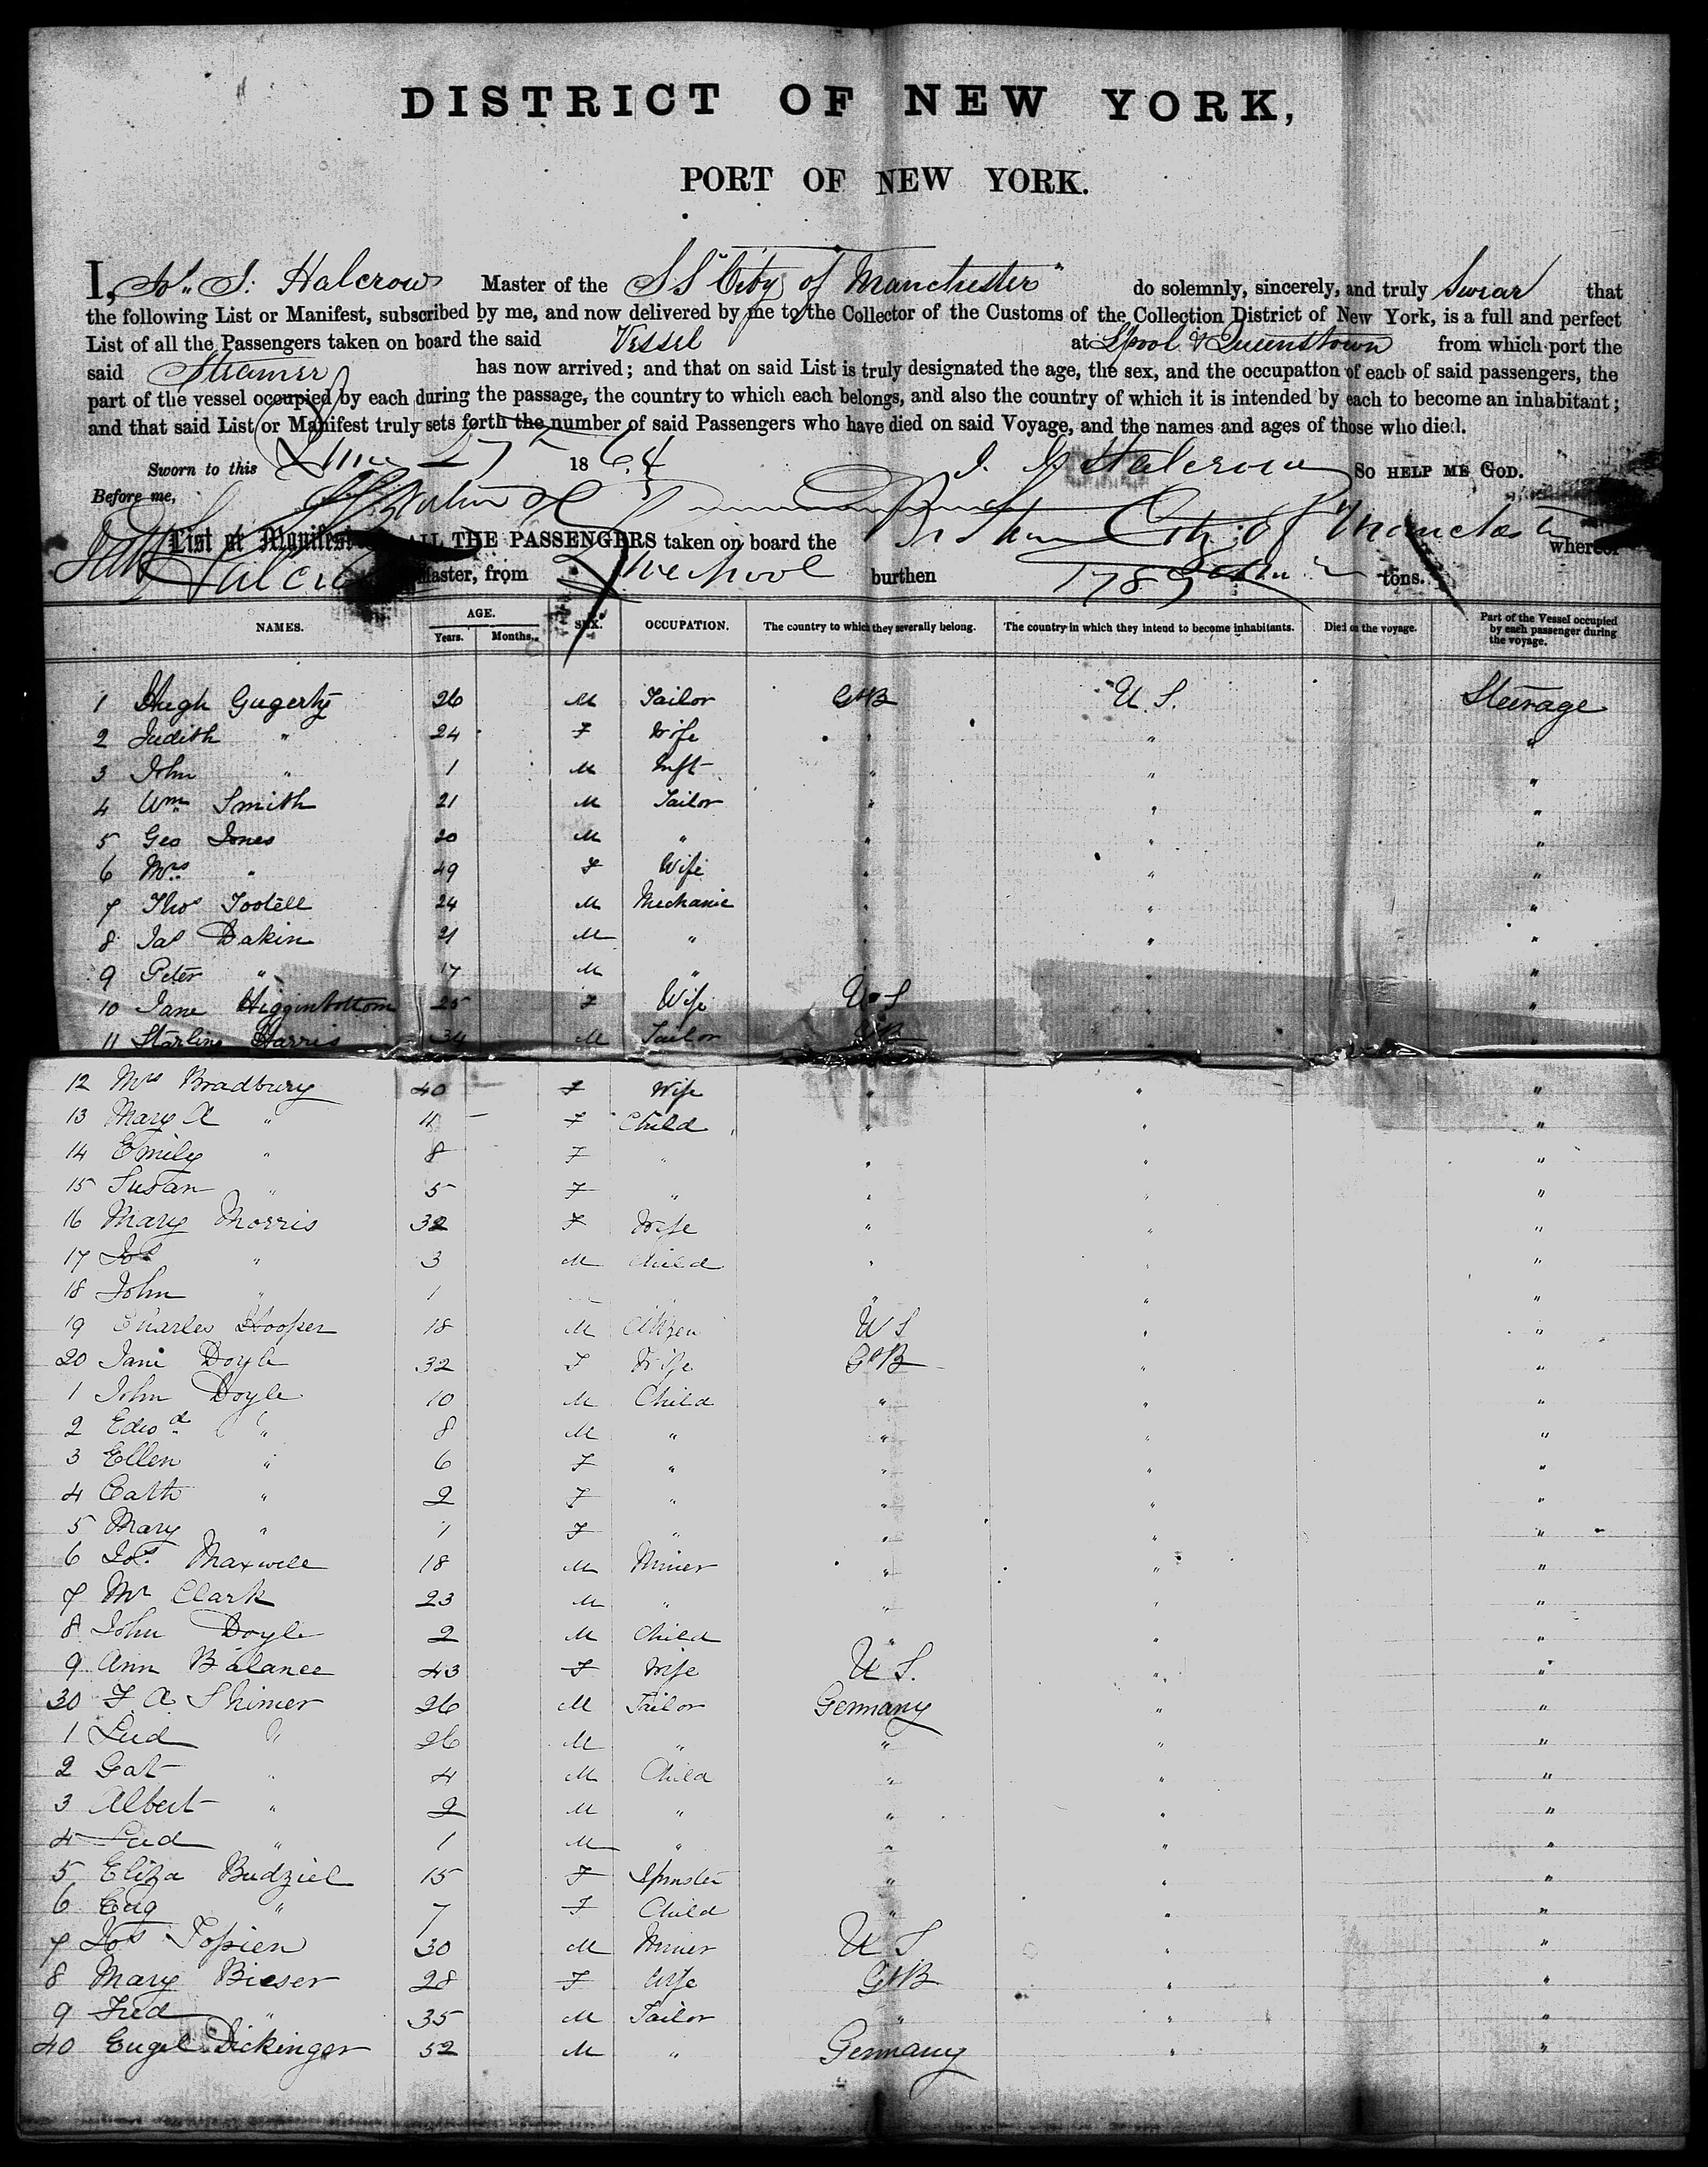 DISTRICT OF NEW YORK,
PORT OF NEW YORK.
I, J. Halcrow Master of the SS "City of Manchester" do solemnly, sincerely, and truly Swear that
the following List or Manifest, subscribed by me, and now delivered by me to the Collector of the Customs of the Collection District of New York, is a full and perfect
List of all the Passengers taken on board the said Vessel at Lpool & Queenstown from which port the
said Steamer has now arrived; and that on said List is truly designated the age, the sex, and the occupatton of each of said passengers, the
part of the vessel occupied by each during the passage, the country to which each belongs, and also the country of which it is intended by each to become an inhabitant;
and that said List or Manifest truly sets forth the number of said Passengers who have died on said Voyage, and the names and ages of those who died.
Sworn to this June 27 1864 J. J. Halcrow SO HELP ME GOD.
Before me,
List or Manifest ALL THE PASSENGERS taken on board the Br Steam City of Manchester whereof
Halcrow Master, from Liverpool burthen tons.
NAMES. AGE. Years. Months. SEX. OCCUPATION. The country to which they severally belong. The country in which they intend to become inhabitants. Died on the voyage. Part of the Vessel occupied by each passenger during the voyage.
1 Hugh Gugerty 26 M Tailor GtB U.S. Steerage
2 Judith " 24 F Wife " " "
3 John " 1 M Inft " " "
4 Wm Smith 21 M Tailor " " "
5 Geo Jones 20 M " " " "
6 Mrs " 49 F Wife " " "
7 Thos Tootell 24 M Mechanic " " "
8 Jas Dakin 21 M " " " "
9 Peter " 17 M " " " "
10 Jane Higginbottom 25 F Wife U.S " "
11 Starling Harris 34 M Tailor GB " "
12 Mrs Bradbury 40 F Wife " " "
13 Mary A " 11 F Child " " "
14 Emily " 8 F " " " "
15 Susan " 5 F " " " "
16 Mary Morris 32 F Wife " " "
17 Jos " 3 M Child " " "
18 John " 1 " " "
19 Charles Hooper 18 M Citizen U S " "
20 Jane Doyle 32 F Wife GtB " "
1 John Doyle 10 M Child " " "
2 Edwd " 8 M " " " "
3 Ellen " 6 F " " " "
4 Cath " 2 F " " " "
5 Mary " 1 F " " " "
6 Jos Maxwell 18 M Miner " " "
7 Mr Clark 23 M " " " "
8 John Doyle 2 M Child " " "
9 Ann Balance 43 F Wife U S. " "
30 F A Shimer 26 M Tailor Germany " "
1 Lud " 26 M " " " "
2 Gat " 4 M Child " " "
3 Albert " 2 M " " " "
4 Lud " 1 M " " " "
5 Eliza Budziel 15 F Spinster " " "
6 Eug " 7 F Child " " "
7 Jos Topien 30 M Miner U S " "
8 Mary Bieser 28 F Wife GtB " "
9 Fred " 35 M Tailor " " "
40 Engel Dickinger 52 M " Germany " "